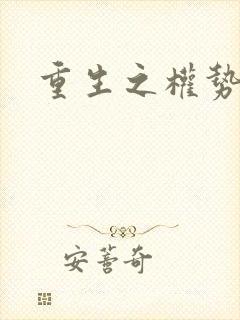 重生之權勢
安薔奇